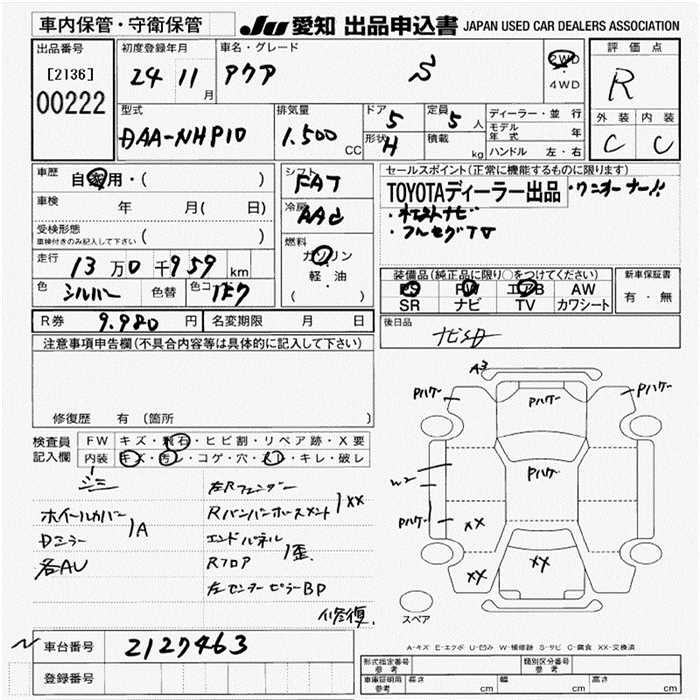 車内保管・守衛保管
JU 愛知 出品申込書 JAPAN USED CAR DEALERS ASSOCIATION
出品番号
[2136]
00222
初度登録年月
24 11月
車名・グレード
アクア S
2WD
・
4WD
評価点
R
外装 内装
C C
型式
DAA-NHP10
排気量
1.500 CC
ドア 5
形状 H
定員 5 人
積載 kg
ディーラー・並行
モデル年式 年
ハンドル 左・右
車歴
自家用・( )
車検 年 月( 日)
受検形態
車検付きのみ記入して下さい ( )
走行 13万0千959 km
色 シルバー 色替 色コ 1F7
シフト FAT
冷房 AAC
燃料
ガソリン
・
軽・油
( )
セールスポイント(正常に機能するものに限ります)
TOYOTAディーラー出品・ワンオーナー!!
・社外ナビ
・フルセグTV
装備品(純正品に限り○をつけてください)
PS PW エアB AW
SR ナビ TV カワシート
新車保証書
有・無
R券 9.980 円 名変期限 月 日
後日品
ナビSD
注意事項申告欄(不具合内容等は具体的に記入して下さい)
修復歴 有 (箇所 )
検査員
記入欄
FW キズ・飛石・ヒビ割・リペア跡・X要
内装 キズ・汚レ・コゲ・穴・スレ・キレ・破レ
シミ
ホイールカバー
Dミラー
A
各AU
左Rフェンダー
Rバンパーホースメント
XX
エンドパネル
Rフロア
歪
左センターピラーBP
修復
A3
Pハゲ
Pハゲ
Pハゲ
W2
Pハゲ
Pハゲ
XX
XX
XX
スペア
A-キズ E-エクボ U-凹み W-補修跡 S-サビ C-腐食 XX-交換済
車台番号 2127463
登録番号
形式指定番号
参考
類別区分番号
参考
車庫証明用
参考
長さ cm 幅 cm 高さ cm